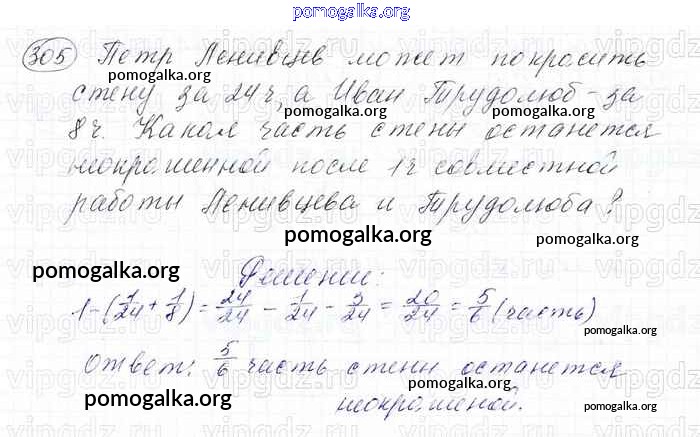 pomogalka.org
305 Петр Ленивцев может покрасить
pomogalka.org
pomogalka.org
стену за 24 ч, а Иван Трудолюб - за
pomogalka.org
pomogalka.org
8 ч. Какая часть стены останется
неокрашенной после 1 ч совместной
работы Ленивцева и Трудолюба?
pomogalka.org
pomogalka.org
pomogalka.org
Решение:
1 - (1/24 + 1/8) = 24/24 - 1/24 - 3/24 = 20/24 = 5/6 (часть)
pomogalka.org
Ответ: 5/6 часть стены останется
pomogalka.org
pomogalka.org
неокрашеной.
pomogalka.org
pomogalka.org